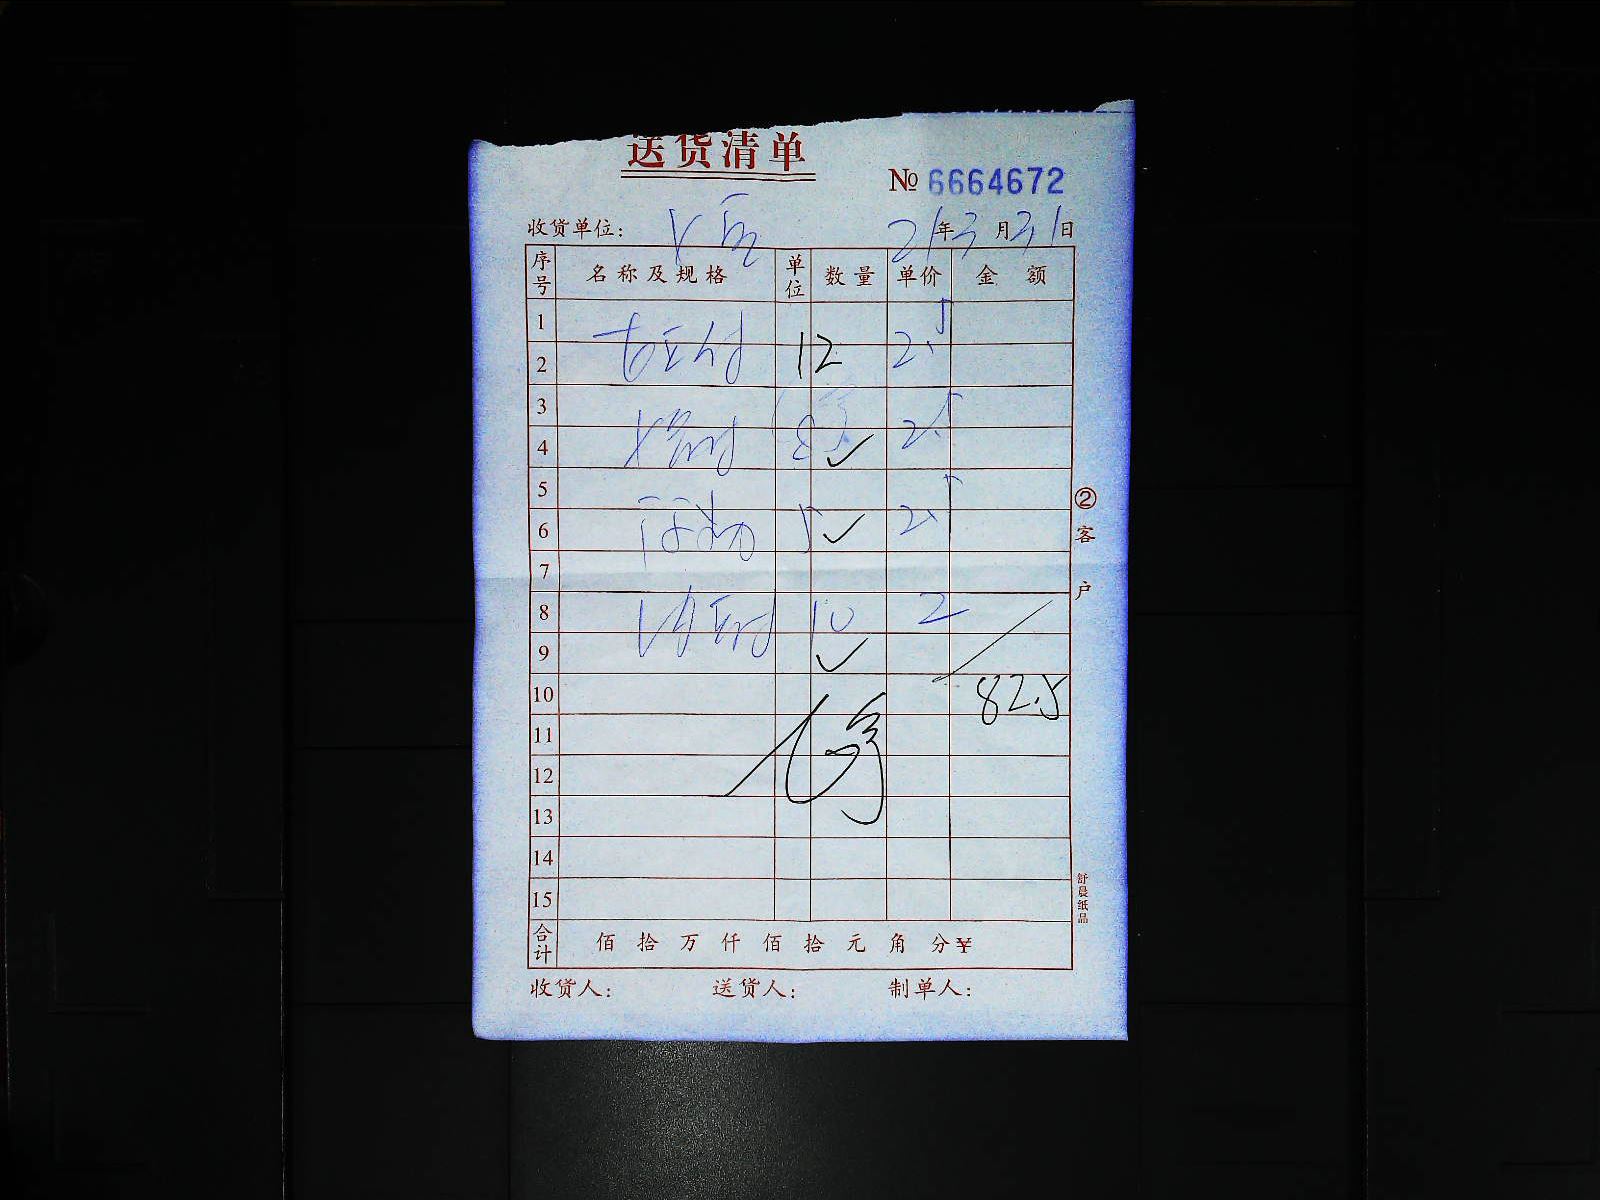 送货清单
№ 6664672
收货单位： 21年3月31日
序号 名称及规格 单位 数量 单价 金额
1
2 12 2.5
3
4 8 2.5
5
6 5 2.5
7
8 10 2
9
10 82.5
11
12
13
14
15
合计 佰 拾 万 仟 佰 拾 元 角 分 ¥
收货人： 送货人： 制单人：
②客户
舒晨纸品